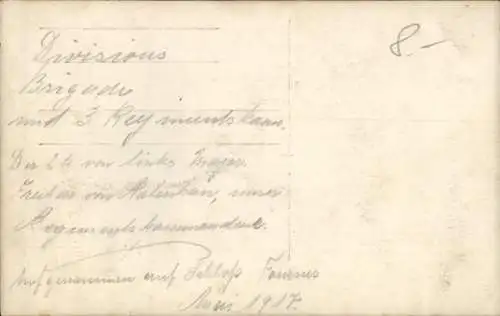 8-
Divisions
Brigade
und 3 Regimentskom.
Der 2te von links Major
Freiherr von, unser
Regimentskommandeur.
Aufgenommen auf Schloß Fournes
Mai 1917